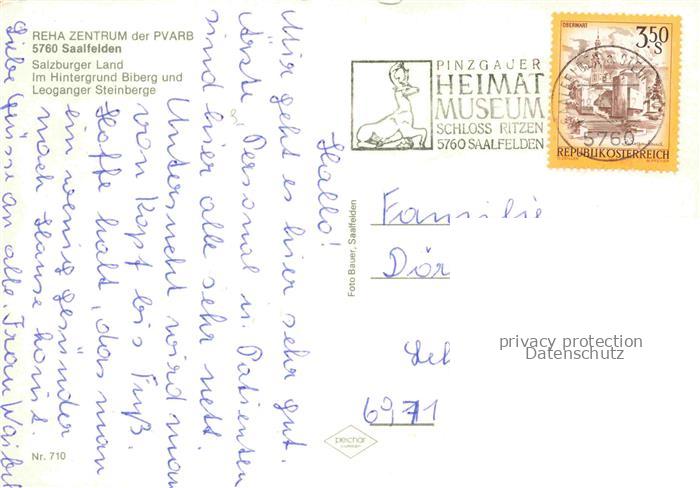 REHA ZENTRUM der PVARB
5760 Saalfelden
Salzburger Land
Im Hintergrund Biberg und
Leoganger Steinberge
Nr. 710
Hallo!
Mir geht es hier sehr gut.
Ärzte Personal u. Patienten
sind hier alle sehr nett.
Untersucht wird man
von Kopf bis Fuß.
Hoffe halt, das man
ein wenig gesünder
nach Hause komt.
Liebe Grüsse an alle. Frau
Foto Bauer, Saalfelden
PINZGAUER
HEIMAT
MUSEUM
SCHLOSS RITZEN
5760 SAALFELDEN
OBERWART
3,50
S
5760
REPUBLIK ÖSTERREICH
Familie
Dör
6971
pechar
privacy protection
Datenschutz